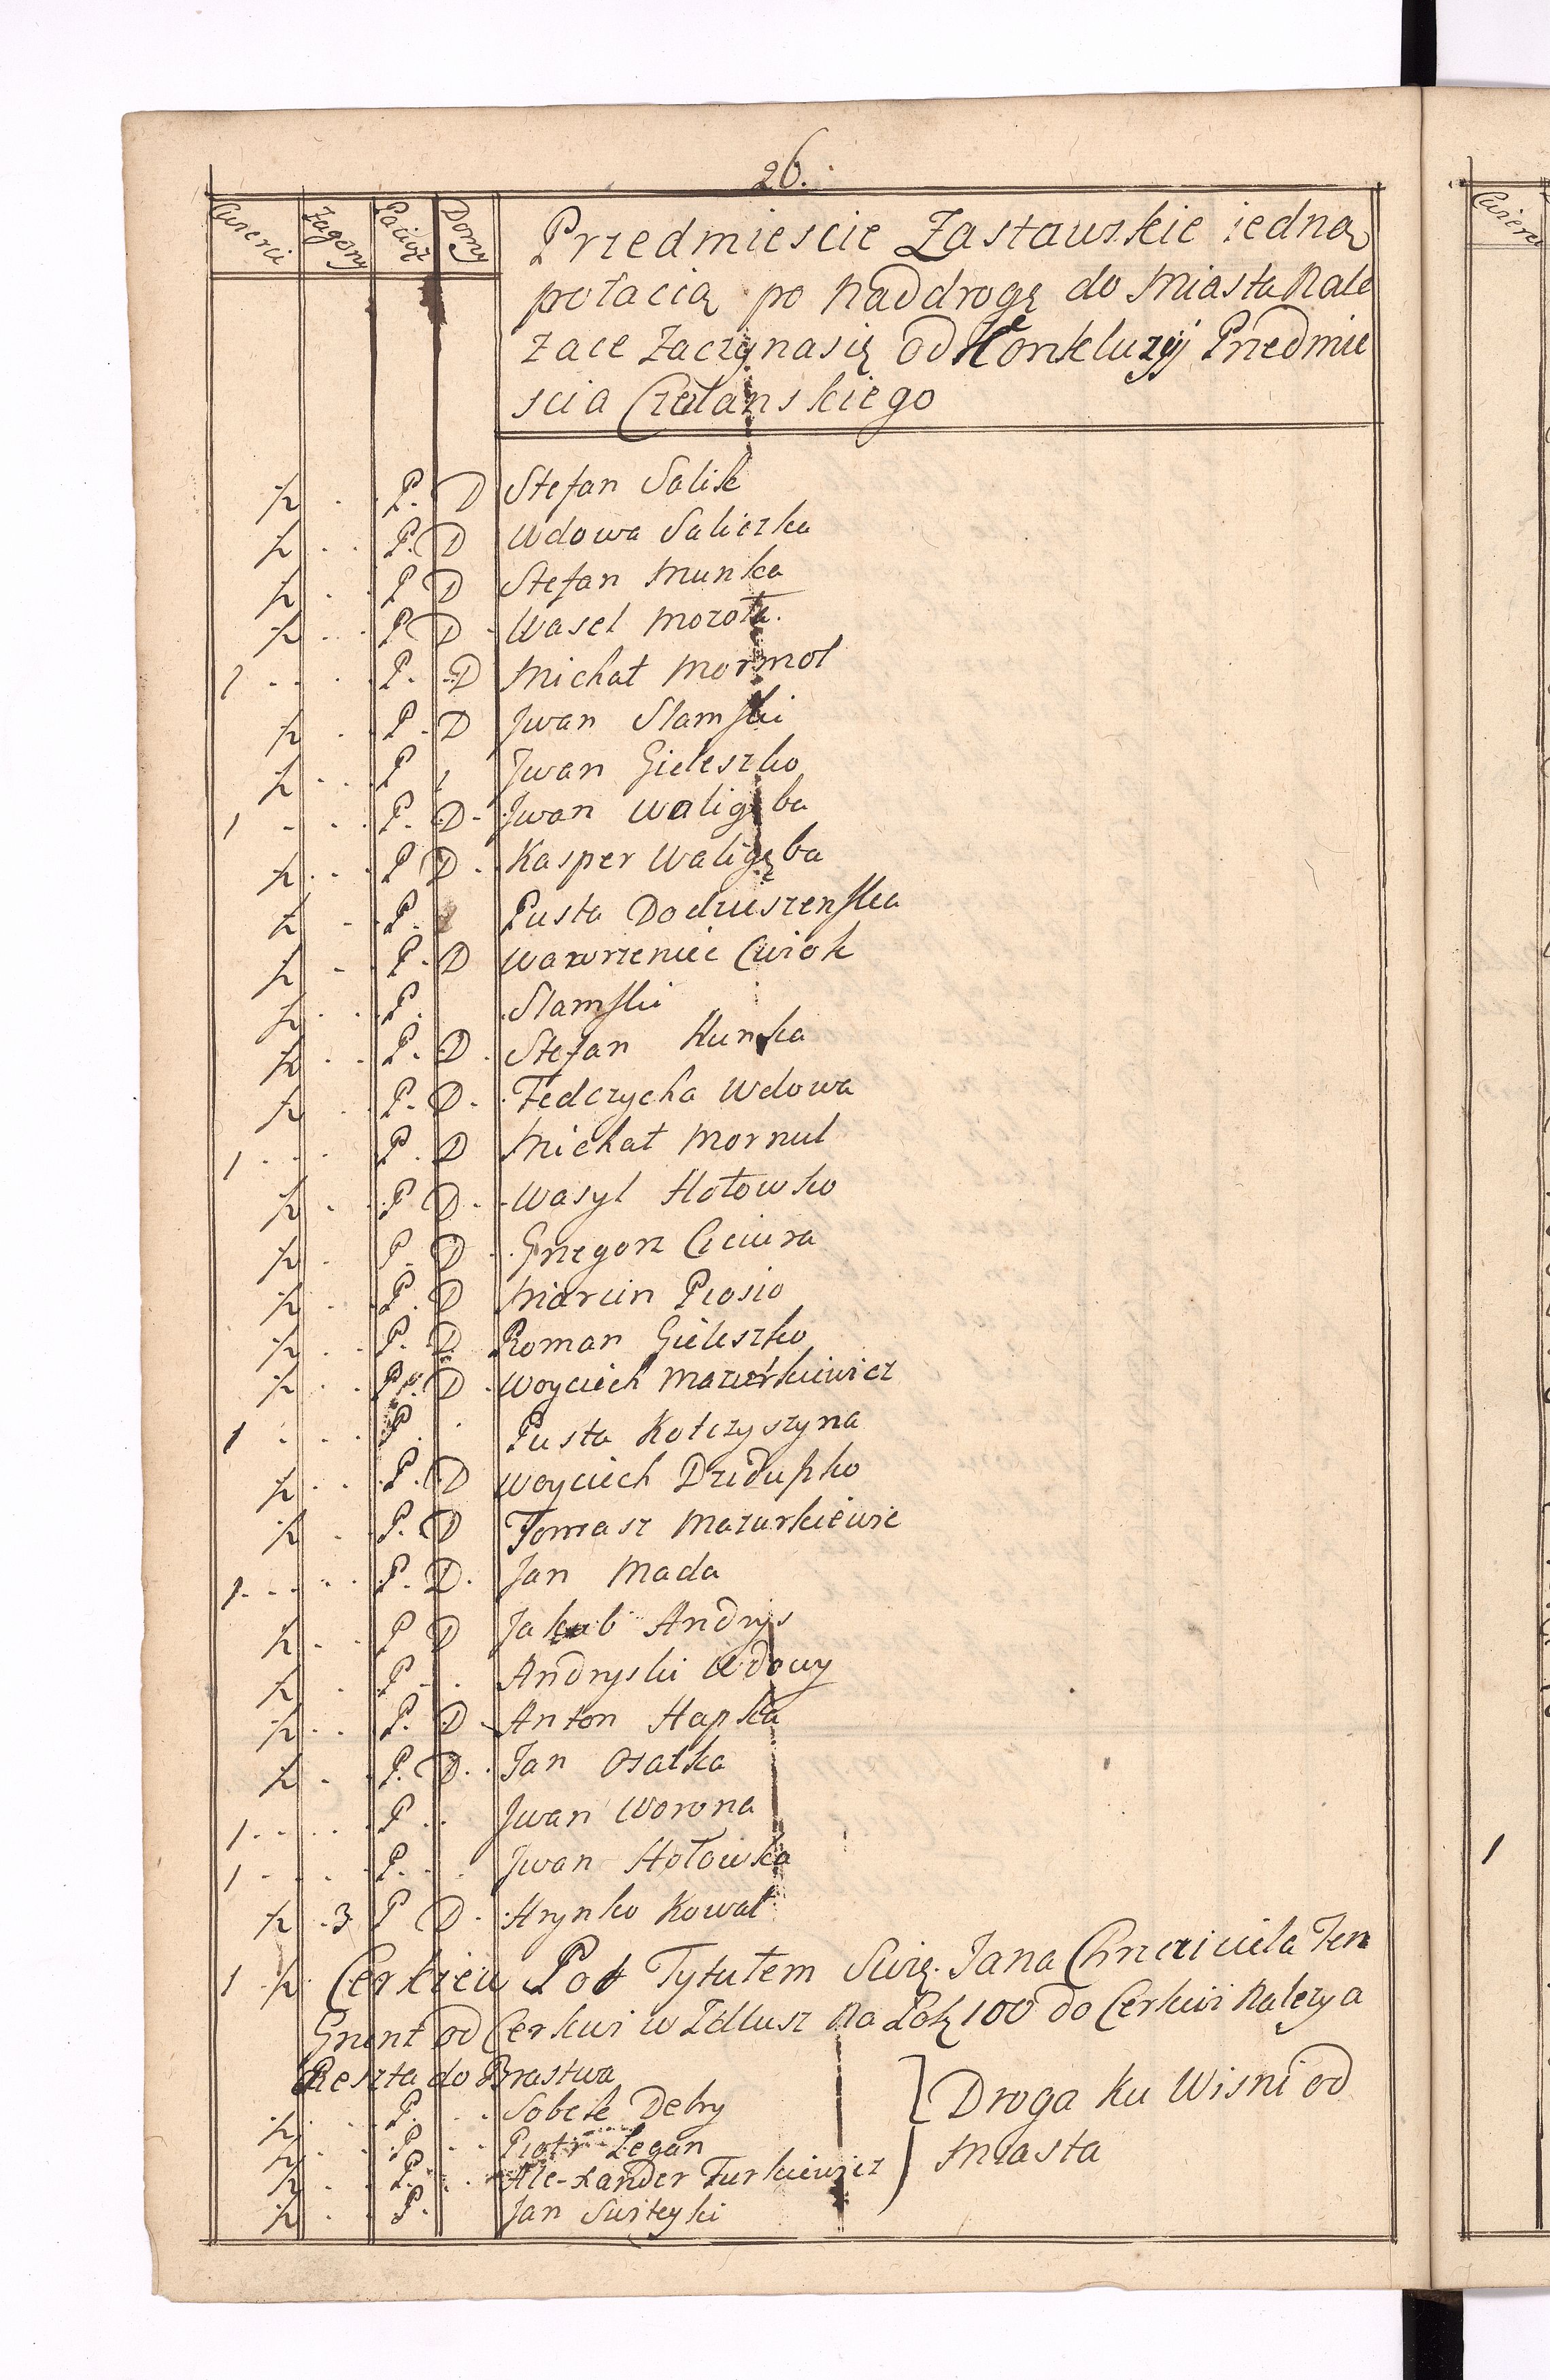 26.
Cwierci Zagony Placuw Domy
Przedmiescie Zastawskie iedną
połacią po nad drogę do Miasta Nale
zace Zaczyna się od Konkluzyi Przedmie
scia Czolanskiego
½ P. D Stefan Salik
½ P. D Wdowa Saliczka
½ P D Stefan Munka
½ P D Wasel Morota
1 P. D Michał Mormol
½ P D Jwan Slamski
½ P Jwan Gieleszko
1 P. D Jwan Waligęba
½ P D Kasper Waligęba
½ P. Pusta
½ P. D Wawrzeniec Cwiok
½ P. Slamski
½ P. D. Stefan Hunka
½ P. D. Fedczycha Wdowa
1 P. D Michał Mornul
½ P D. Wasyl Hołowko
½ P. D Grzegorz Cieciura
½ P. D Marcin Prosio
½ P. D. Roman Gieleszko
½ P. D Woyciech Mazurkiewicz
1 P Pusta Kotczyszyna
½ P. D Woyciech
½ P. D Tomasz Mazurkiewic
1 P. D. Jan Mada
½ P D Jakub Andrys
½ P Andryski Wdowy
½ P. D Anton Hapka
½ P. D. Jan Osatka
1 P Jwan Worona
1 P. Jwan Hołowka
½ 3 P D. Hrynko Kowal
1 ½ Cerkiew Pod Tytułem Swię. Jana Chrzciciela Ten
Grunt od Cerkwi w Zdłusz Na Łok 100 do Cerkwi Nalezy a
Reszta do Brastwa
½ P. Sobek Debry
½ P. Piotr Legan
½ P. Alexander Turkiewicz
½ P. Jan Switeyki
Droga ku Wisni od
Miasta
Cwierci
1